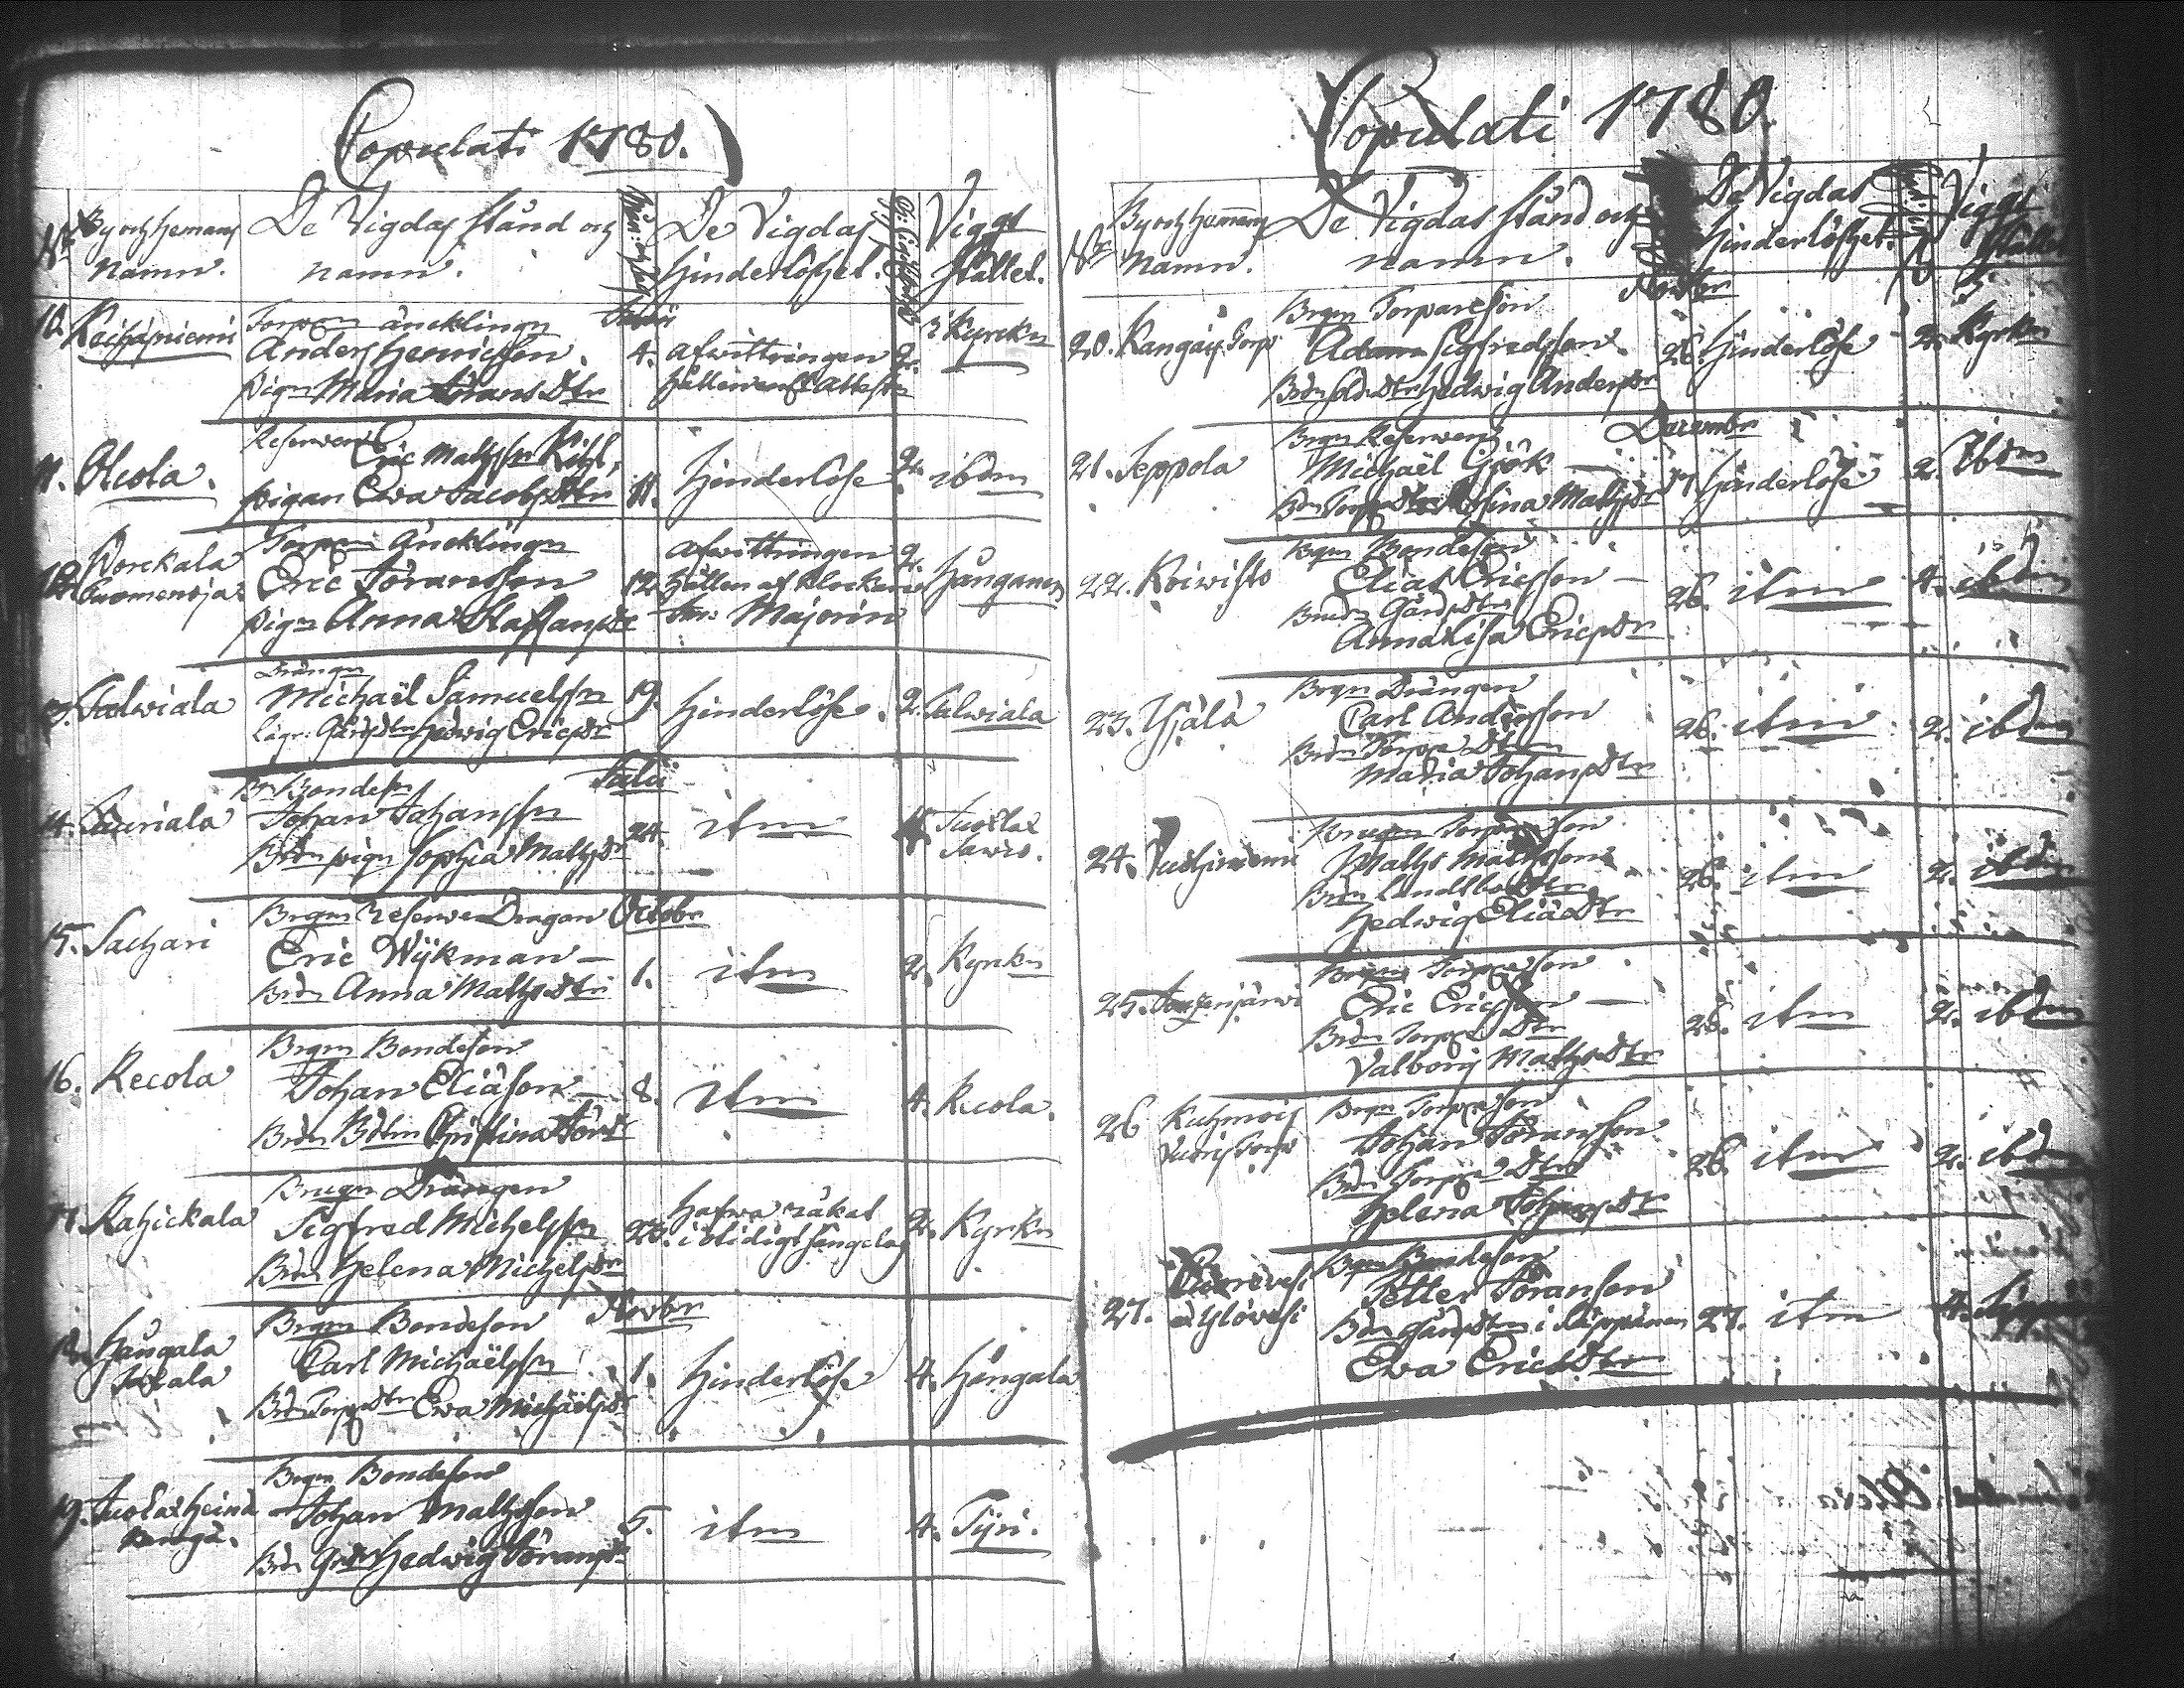 Copulati 1780.
Nr
By och Hemans
Namn.
De Vigdas stånd och
namn.
De Vigdas
Hinderlöshet.
Vigsl
stället.
10. Keihäsniemi
Torparen äncklingn
Anders Henricsson.
pign Maria Göransdtr
Junii
4.
afwittringen
hållen Attest
2.
i Kyrckn
11. Olcola.
Reserven
Eric Matsson
pigan Ewa Jacobsdtr
11.
Hinderlöse
2.
ibdm
12. Korckala
Torparen Äncklingn
Eric Göransson
pign Anna Staffansdr
12.
afwittringen
hållen af Klockaren
Majorin
2.
13. Salwiala
Drängn
Michaël Samuelssn
Hedwig Ericsdr
19.
Hinderlöse.
2.
Salwiala
14. Lauriala
Br Bondesn
Johan Johanssn
Brdn pign Sophia Matsdr
Julii
24.
itm
4.
15. Sachari
Brgm Reserve Dragon
Eric Wijkman
Brdn Anna Matsdtr
Octobr
1.
itm
2.
Kyrkn
16. Recola
Brgm Bondeson
Johan Eliäson
Brdn Bdtrn Christina Görsdr
8.
itm
4.
Recola.
17. Rahickala
Brugm Drängen
Sigfred Michelssn
Brdn Helena Michelsdr
23.
hafwa råkat
i otidigt sängelag
2.
Kyrkn
18. Hångala
Brgm Bondeson
Carl Michaëlssn
Brdn Torp dtr Ewa Michaëlsdr
Novbr
1.
Hinderlöse
4.
Hångala
19.
Brgm Bondeson
Johan Mattsson
Brdn Hedwig Göransdr
5.
itm
4.
Tyri.
Copulati 1780.
Nr
By och Hemans
Namn.
De Vigdas stånd och
namn.
De Vigdas
Hinderlöshet.
Vigsl
stället
20. Kangais Torp
Brgm Torpareson
Adam Sigfredsson
Brdn Hedwig Andersdr
Novbr
26.
Hinderlöse
2.
Kyrkn
21. Seppola
Brgm Reserven
Michaël Göök
Brdn Torp dtr Stina Matsdr
Decembr
17
Hinderlöse
2.
ibdm
22. Koiwisto
Brgm Bondeson
Elias Ericsson
Brudn Gårdsdtr
Anna Lisa Ericsdr
26.
itm
4.
ibdm
23. Yijälä
Brgm Drängen
Carl Andersson
Brdn Torpa Dtrn
Maria Johansdtr
26.
itm
2.
ibdm
24.
Brugm Torpareson
Matts Mattsson
Brdn
Hedwig Eliädtr
26.
itm
2.
ibdm
25.
Brgm Torpareson
Eric Ericsson
Brdn Torpar Dtr
Valborg Matsdtr
26.
itm
2.
ibdm
26 Kuhmois
Brgm Torpareson
Johan Göransson
Brdn Torpar Dtr
Helena Johansdtr
26.
itm
2.
ibdm
27.
Brgm Bondeson
Petter Göranson
Brdn Gårdsdtrn i Läppänen
Ewa Ericsdtr
27.
itm
4.